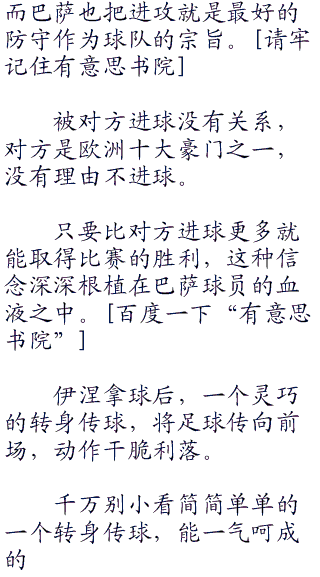 而巴萨也把进攻就是最好的
防守作为球队的宗旨。[请牢
记住有意思书院]
被对方进球没有关系，
对方是欧洲十大豪门之一，
没有理由不进球。
只要比对方进球更多就
能取得比赛的胜利，这种信
念深深根植在巴萨球员的血
液之中。[百度一下“有意思
书院”]
伊涅拿球后，一个灵巧
的转身传球，将足球传向前
场，动作干脆利落。
千万别小看简简单单的
一个转身传球，能一气呵成
的